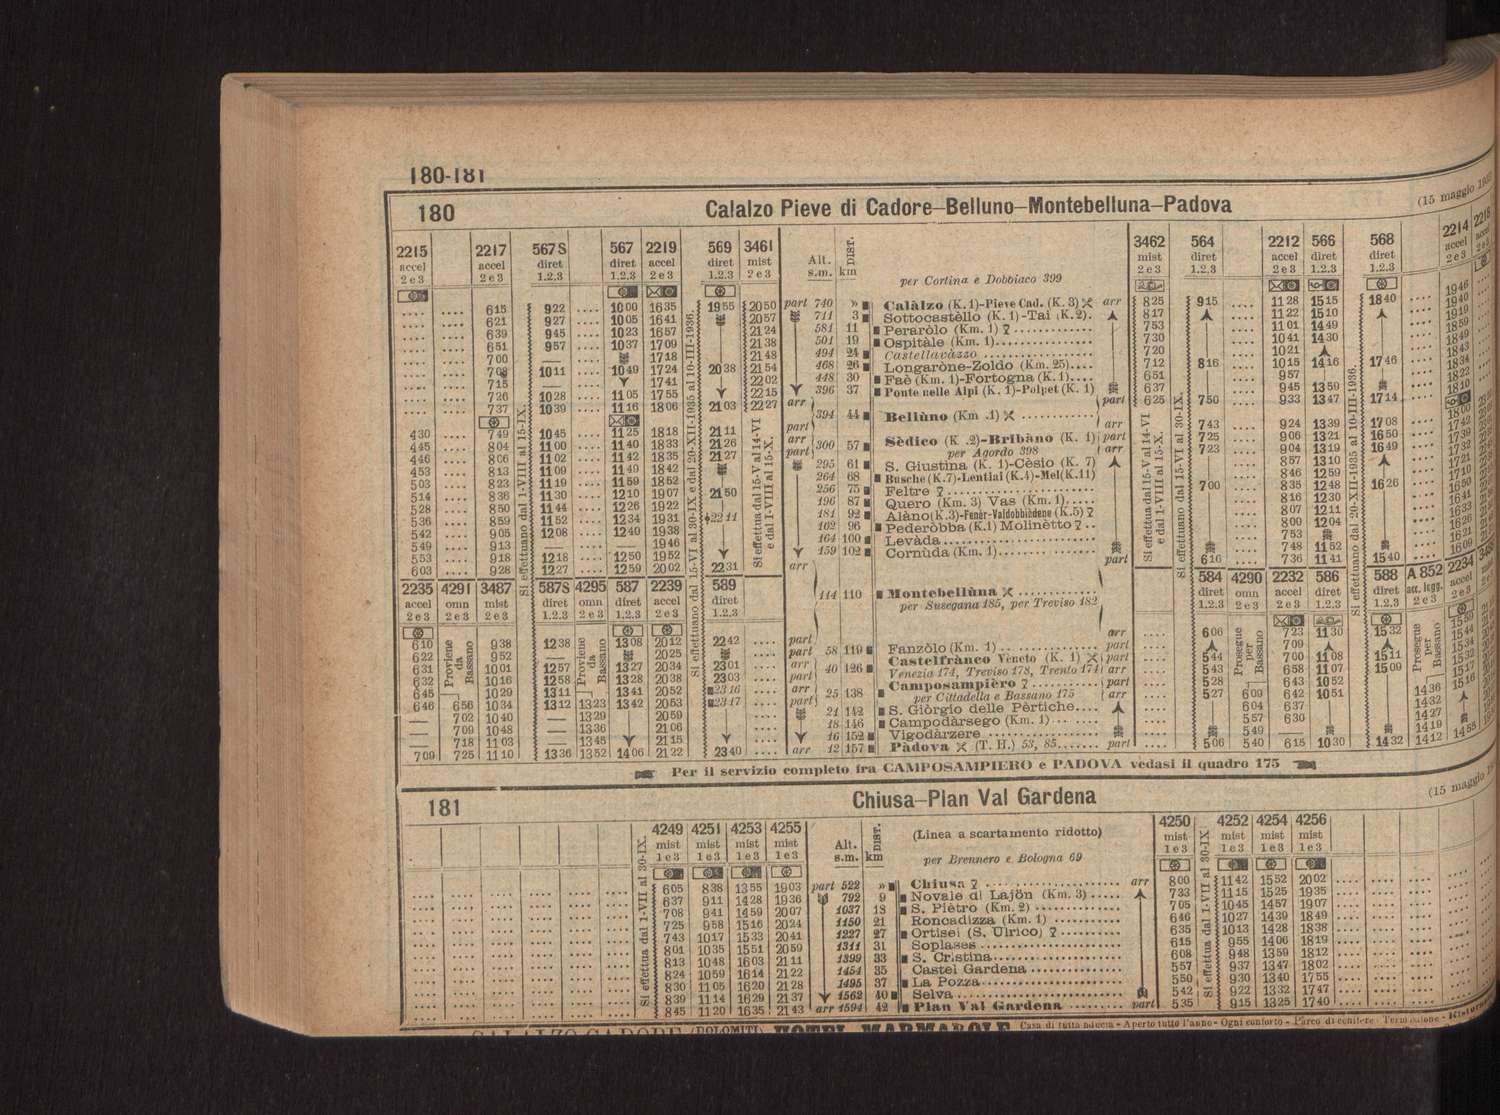 180-181
180 Calalzo Pieve di Cadore–Belluno–Montebelluna–Padova (15 maggio
2215 2217 567S 567 2219 569 3461 Alt. DIST. 3462 564 2212 566 568 2214
accel accel diret diret accel diret mist s.m. km mist diret accel diret diret accel
2 e 3 2 e 3 1.2.3 1.2.3 2 e 3 1.2.3 2 e 3 per Cortina e Dobbiaco 399 2 e 3 1.2.3 2 e 3 1.2.3 1.2.3 2 e 3
.... 615 922 .... 1000 1635 1955 2050 part 740 » Calàlzo (K. 1)-Pieve Cad. (K. 3) arr 825 915 .... 1128 1515 1840 .... 1946
.... 621 927 .... 1005 1641 2057 711 3 Sottocastèllo (K. 1)-Tai (K. 2). 817 .... 1122 1510 .... 1940
.... 639 945 .... 1023 1657 2124 581 11 Peraròlo (Km. 1) 753 .... 1101 1449 .... 1919
.... 651 957 .... 1037 1709 2138 501 19 Ospitàle (Km. 1) 730 .... 1041 1430 .... 1859
.... 700 — .... 1718 2148 494 24 Castellavàzzo 720 .... 1021 .... 1849
.... 708 1011 .... 1049 1724 2038 2154 468 26 Longaròne-Zoldo (Km. 25) 712 816 .... 1015 1416 1746 .... 1843
.... 715 — .... 1741 2202 448 30 Faè (Km. 1)-Fortogna (K. 1) 651 .... 957 .... 1834
.... 726 1028 .... 1105 1755 2215 396 37 Ponte nelle Alpi (K. 1)-Polpet (K. 1) 637 .... 945 1359 .... 1822
.... 737 1039 .... 1116 1806 2103 2227 arr part 625 750 .... 933 1347 1714 .... 1810
394 44 Bellùno (Km .1)
430 .... 749 1045 .... 1125 1818 2111 part arr 743 .... 924 1339 1708 .... 1800
445 .... 804 1100 .... 1140 1833 2126 arr 300 57 Sèdico (K .2)-Bribàno (K. 1) part 725 .... 906 1321 1650 .... 1742
446 .... 806 1102 .... 1142 1835 2127 part per Agordo 398 arr 723 .... 904 1319 1649 .... 1739
453 .... 813 1109 .... 1149 1842 295 61 S. Giustina (K. 1)-Cèsio (K. 7) .... 857 1310 .... 1732
503 .... 823 1119 .... 1159 1852 264 68 Busche (K.7)-Lentiai (K.4)-Mel (K.11) .... 846 1259 .... 1721
514 .... 836 1130 .... 1210 1907 2150 256 75 Feltre 700 .... 835 1248 1626 .... 1710
528 .... 850 1144 .... 1226 1922 196 87 Quero (Km. 3) Vas (Km. 1) .... 816 1230 .... 1650
536 .... 859 1152 .... 1234 1931 2211 181 92 Alàno (K.3)-Fenèr-Valdobbiàdene (K.5) .... 807 1211 .... 1641
542 .... 905 1208 .... 1240 1938 162 96 Pederòbba (K.1) Molinètto .... 800 1204 .... 1633
549 .... 913 — .... — 1946 164 100 Levàda .... 753 .... 1626
553 .... 918 1218 .... 1250 1952 159 102 Cornùda (Km. 1) .... 748 1152 .... 1621
603 .... 928 1227 .... 1259 2002 2231 arr part .... 616 .... 736 1141 1540 .... 1609
Si effettuano dal 1-VIII al 15-IX.
Si effettuano dal 15-VI al 30-IX e dal 20-XII-1935 al 10-III-1936
Si effettuano dal 15-V al 14-VI e dal 1-VIII al 15-X.
Si effettuano dal 15-V al 14-VI e dal 1-VIII al 15-X.
Si effettuano dal 15-VI al 30-IX.
Si effettuano dal 20-XII-1935 al 10-III-1936.
2235 4291 3487 587S 4295 587 2239 589 114 110 Montebellùna 584 4290 2232 586 588 A 852 2234
accel omn mist diret omn diret accel diret per Susegana 185, per Treviso 182 diret omn accel diret diret aut. legg. accel
2 e 3 2 e 3 2 e 3 1.2.3 2 e 3 1.2.3 2 e 3 1.2.3 1.2.3 2 e 3 2 e 3 1.2.3 1.2.3 2 e 3 2 e 3
610 Proviene da Bassano 938 1238 Proviene da Bassano 1308 2012 2242 .... part arr .... 606 Prosegue per Bassano 723 1130 1532 Prosegue per Bassano 1559
622 952 2025 .... part 58 119 Fanzòlo (Km. 1) part .... 709 1544
631 1001 1257 1327 2034 2301 .... arr 40 126 Castelfrànco Vèneto (K. 1) part .... 544 700 1108 1511 1534
632 1016 1258 1328 2038 2303 .... part Venezia 174, Treviso 178, Trento 174 arr .... 543 658 1107 1509 1532
645 1029 1311 1341 2052 2316 .... arr 25 138 Camposampièro part .... 528 643 1052 1436 1517
646 656 1034 1312 1323 1342 2053 2317 .... part per Cittadella e Bassano 175 arr .... 527 609 642 1051 1432 1516
— 702 1040 — 1329 2059 .... 21 142 S. Giòrgio delle Pèrtiche .... 604 637 1427
— 709 1048 — 1336 2106 .... 18 146 Campodàrsego (Km. 1) .... 557 630 1419
— 718 1103 — 1345 2115 .... 16 152 Vigodàrzere .... 549 —
709 725 1110 1336 1352 1406 2132 2340 .... arr 12 157 Pàdova (T. H.) 53, 85 part .... 506 540 615 1030 1432 1412 1455
Per il servizio completo fra CAMPOSAMPIERO e PADOVA vedasi il quadro 175
181 Chiusa–Plan Val Gardena (15 maggio
4249 4251 4253 4255 Alt. DIST. (Linea a scartamento ridotto) 4250 4252 4254 4256
mist mist mist mist s.m. km mist mist mist mist
1 e 3 1 e 3 1 e 3 1 e 3 per Brennero e Bologna 69 1 e 3 1 e 3 1 e 3 1 e 3
Si effettua dal 1-VII al 30-IX.
Si effettua dal 1-VII al 30-IX
605 838 1355 1903 part 522 » Chiusa arr 800 1142 1552 2002
637 911 1428 1936 792 9 Novale di Lajön (Km. 3) 733 1115 1525 1935
708 941 1459 2007 1037 18 S. Piètro (Km. 2) 705 1045 1457 1907
725 958 1516 2024 1150 21 Roncadizza (Km. 1) 646 1027 1439 1849
743 1017 1533 2041 1227 27 Ortisei (S. Ulrico) 635 1013 1428 1838
801 1035 1551 2059 1311 31 Soplases 615 955 1406 1819
813 1048 1603 2111 1399 33 S. Cristina 608 948 1359 1812
824 1059 1614 2122 1454 35 Castel Gardena 557 937 1347 1802
830 1105 1620 2128 1495 37 La Pozza 550 930 1340 1755
839 1114 1629 2137 1562 40 Selva 542 922 1332 1747
845 1120 1635 2143 arr 1594 42 Plan Val Gardena part 535 915 1325 1740
CALALZO CADORE (DOLOMITI) HOTEL MARMAROLE Casa di tutta fiducia - Aperto tutto l'anno - Ogni conforto - Parco di conifere - Termosifone -